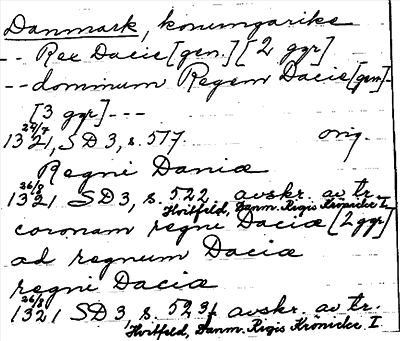 Danmark, konungarike
-- Rex Dacie [gen.] [2 ggr]
-- dominum Regem Dacie [gen]-
[3 ggr] ---
24/7
1321, SD 3, s. 517. orig.
Regni Daniæ
26/8
1321 SD 3, s. 522 avskr. av tr.
Hvitfeld, Danm. Rigis Krönicke I
coronam regni Daciæ [2 ggr]
ad regnum Daciæ
regni Daciæ
26/8
1321 SD 3, s. 523f avskr. av tr.
Hvitfeld, Danm. Rigis Krönicke I